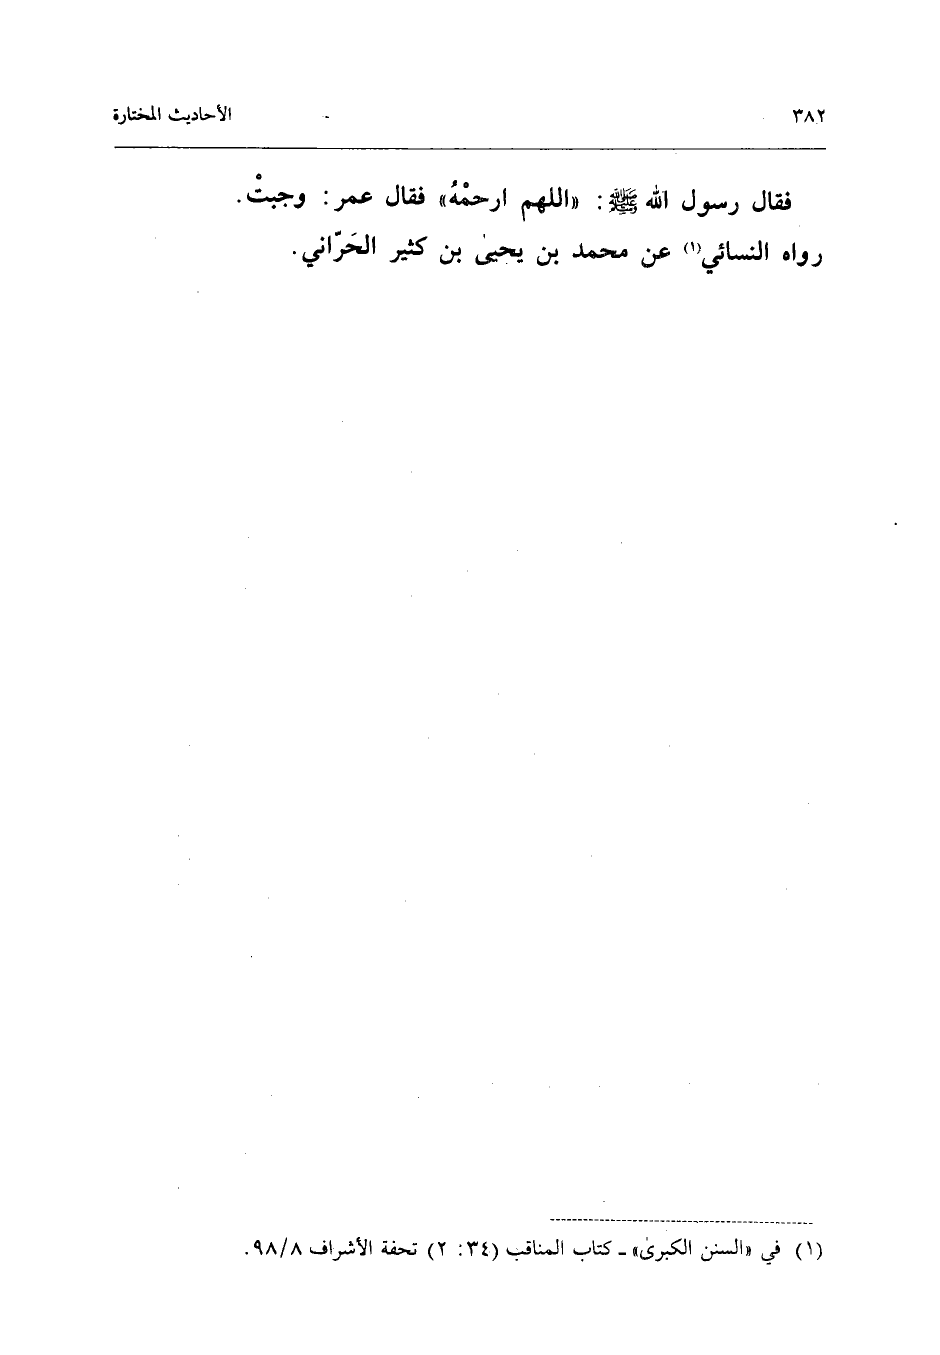 ٣٨٢ الأحاديث المختارة
فقال رسول الله ﷺ: «اللهم ارحمْهُ» فقال عمر: وجبتْ.
رواه النسائي(١) عن محمد بن يحيىٰ بن كثير الحَرّاني.
(١) في «السنن الكبرىٰ» ـ كتاب المناقب (٣٤: ٢) تحفة الأشراف ٩٨/٨.